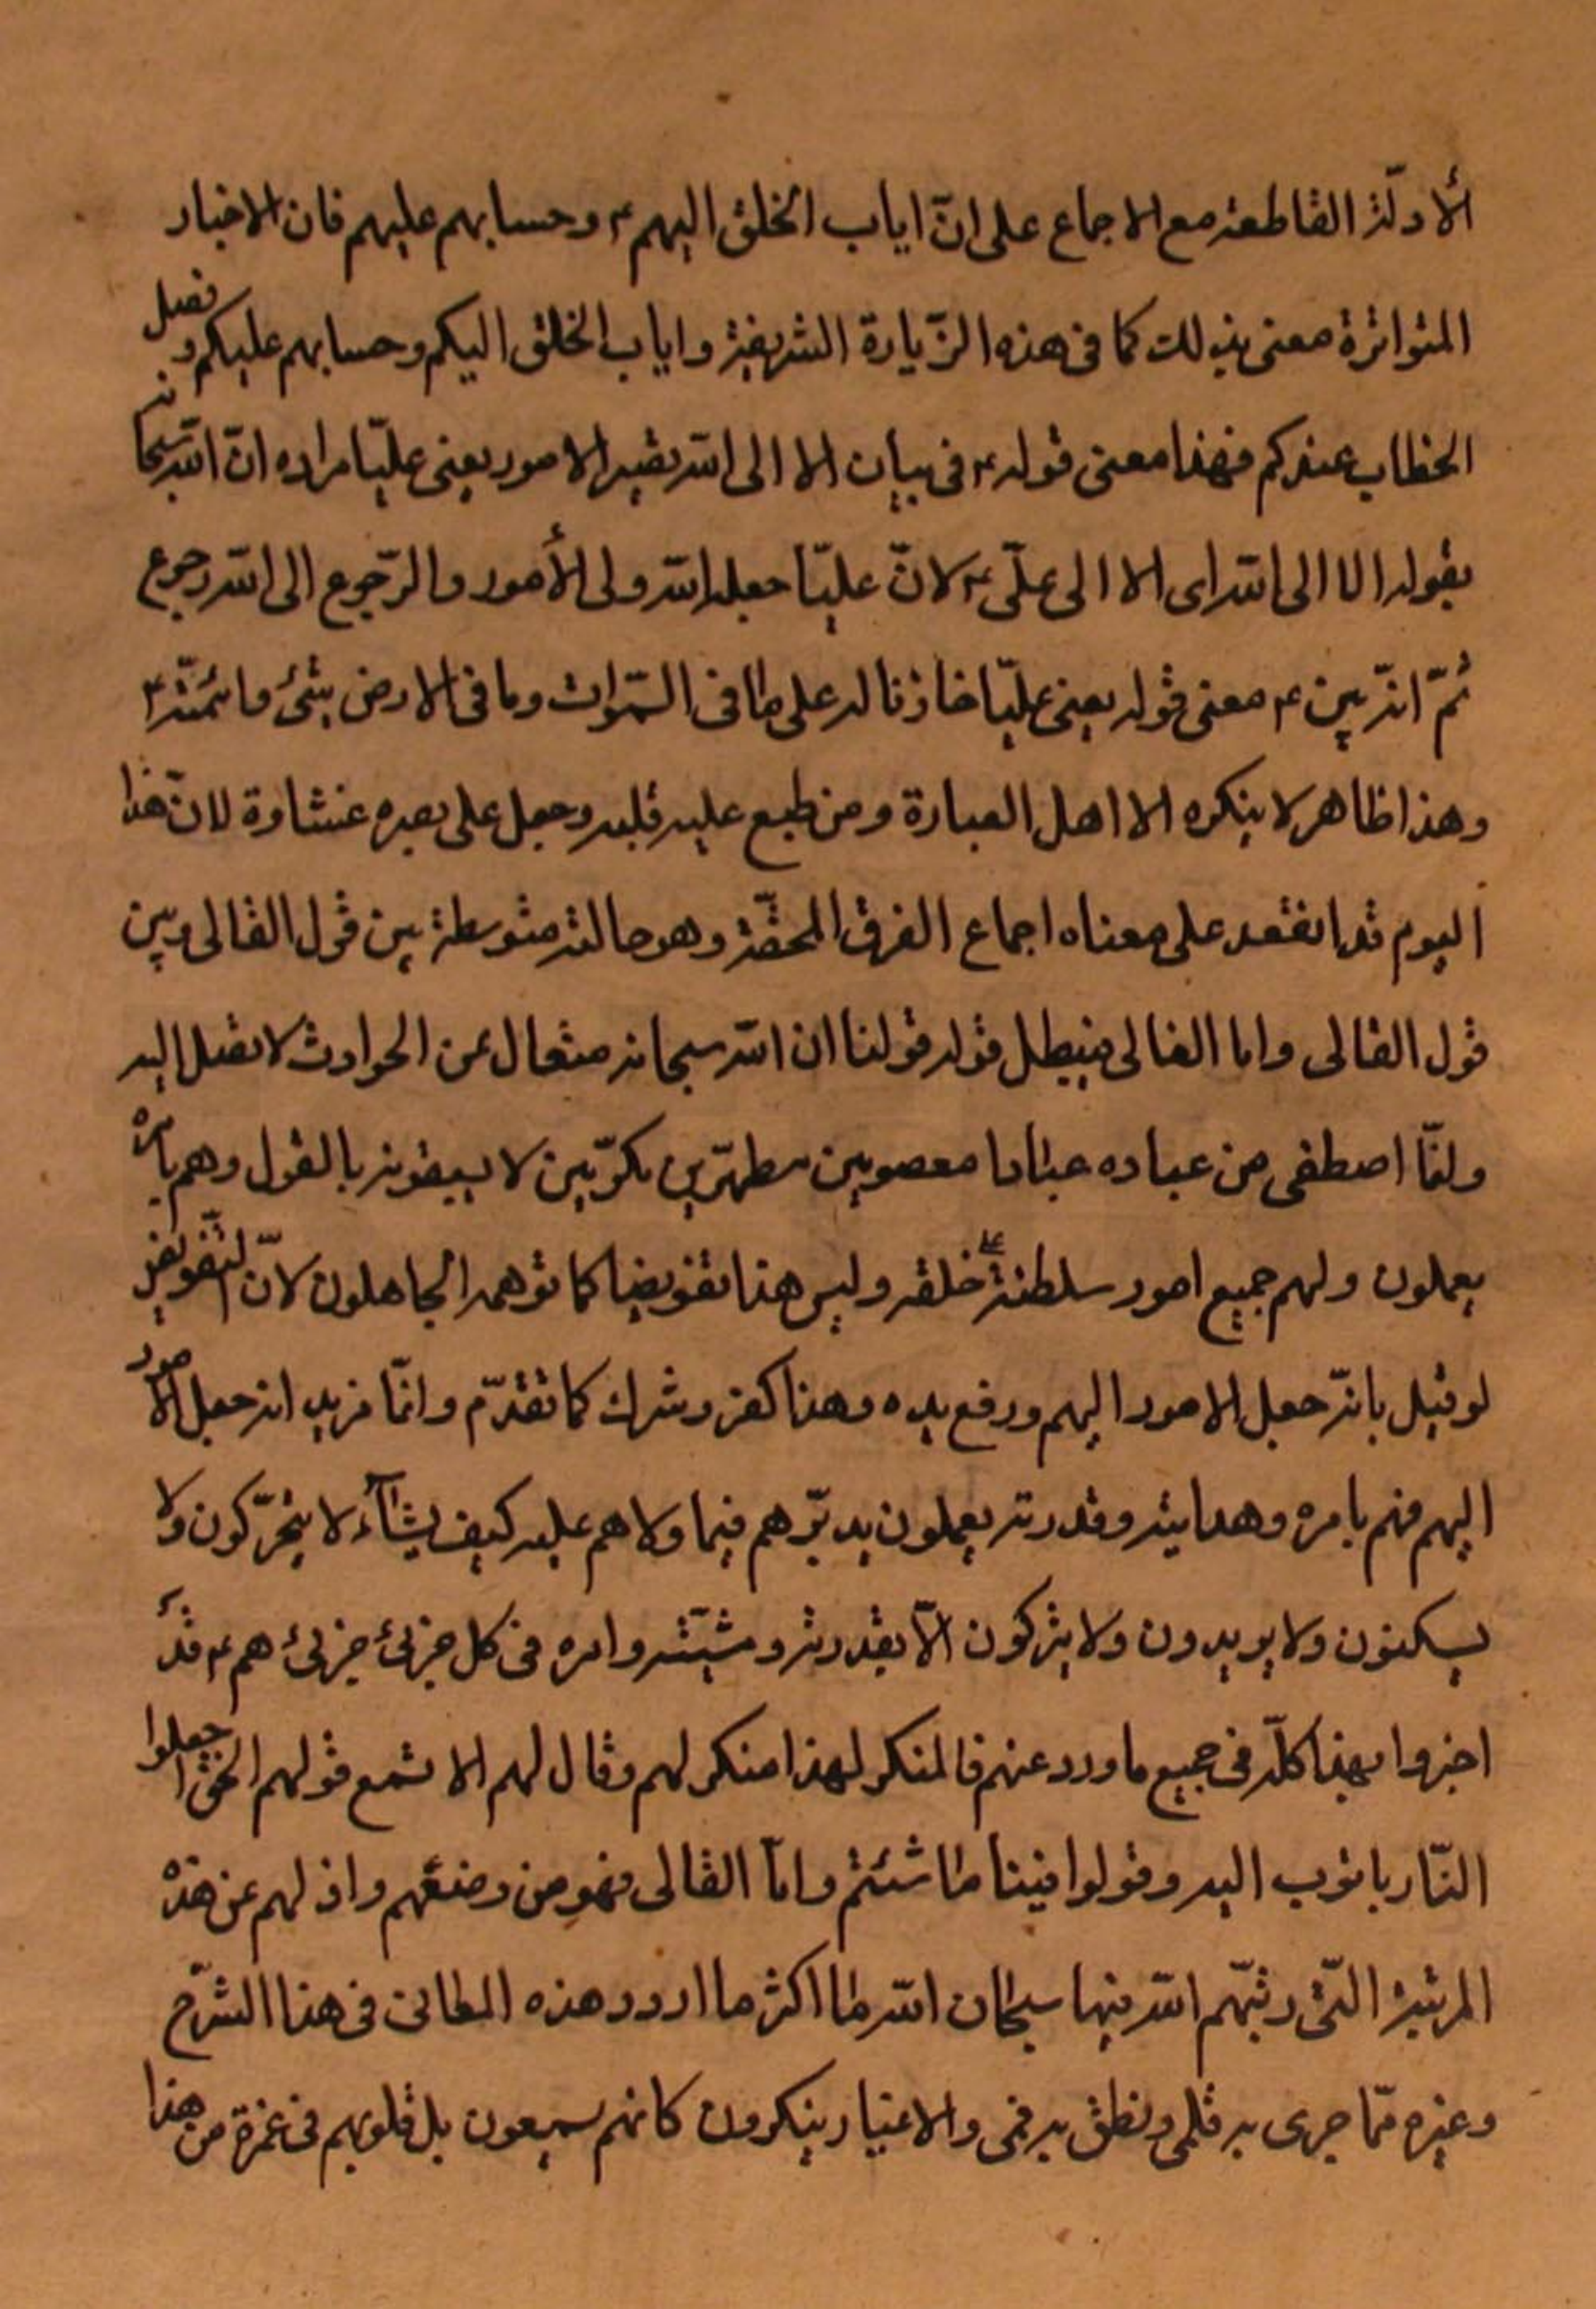 الأدلّة القاطعة مع الاجماع على انّ اياب الخلق اليهم ع وحسابهم عليهم فان الاخبار
المتواترة معنى بذلك كما فى هذه الزّيارة الشريفة واياب الخلق اليكم وحسابهم عليكم وفصل
الخطاب عندكم فهذا معنى قوله ع فى بيان الا الى الله تصير الامور يعنى عليّا مراده انّ الله سبحانه
بقوله الا الى الله اى الا الى علّى ع لانّ عليّا جعله الله ولى الأمور والرّجوع الى الله رجوع
ثمّ انّه بين ع معنى قوله يعنى عليّا خازنا له على ما فى السّموات وما فى الارض بشئ وائمّته ع
وهذا ظاهر لا ينكره الا اهل العبارة ومن طبع عليه قلبه وجعل على بصره غشاوة لانّ هذا
اليوم قد انعقد على معناه اجماع الفرق المحقّة وهو حالة متوسطة بين قول الغالى وبين
قول القالى واما الغالى فيبطل قوله قولنا ان الله سبحانه متعال عن الحوادث لا تصل اليه
ولمّا اصطفى من عباده عبادا معصومين مطهّرين مكرّمين لا يسبقونه بالقول وهم بامره
يعملون ولهم جميع امور سلطنة على خلقه وليس هذا تفويضا كما توهمه الجاهلون لانّ التّفويض
لو قيل بانّه جعل الامور اليهم ورفع يده وهذا كفر وشرك كما تقدّم وانّما نريد انه جعل الامور
اليهم فهم بامره وهدايته وقدرته يعملون يدبّرهم فيما ولاهم عليه كيف يشآء لا يتحرّكون ولا
يسكنون ولا يريدون ولا يتركون الّا بقدرته ومشيّته وامره فى كل جزئ جزئ هم ع قد
اخبروا بهذا كلّه فى جميع ما ورد عنهم فالمنكر لهذا منكر لهم وقال لهم الا تسمع قولهم الحق اجعلوا
لنا ربا نؤب اليه وقولوا فينا ما شئتم وامّا القالى فهو من وضعهم واذلهم عن هذه
المرتبة الّتى رتبّهم الله فيها سبحان الله ما اكثر ما اردد هذه المعانى فى هذا الشّرح
وغيره ممّا جرى به قلمى ونطق به فمى والاغيار ينكرون كانهم يسمعون بل قلوبهم فى غمرة من هذا